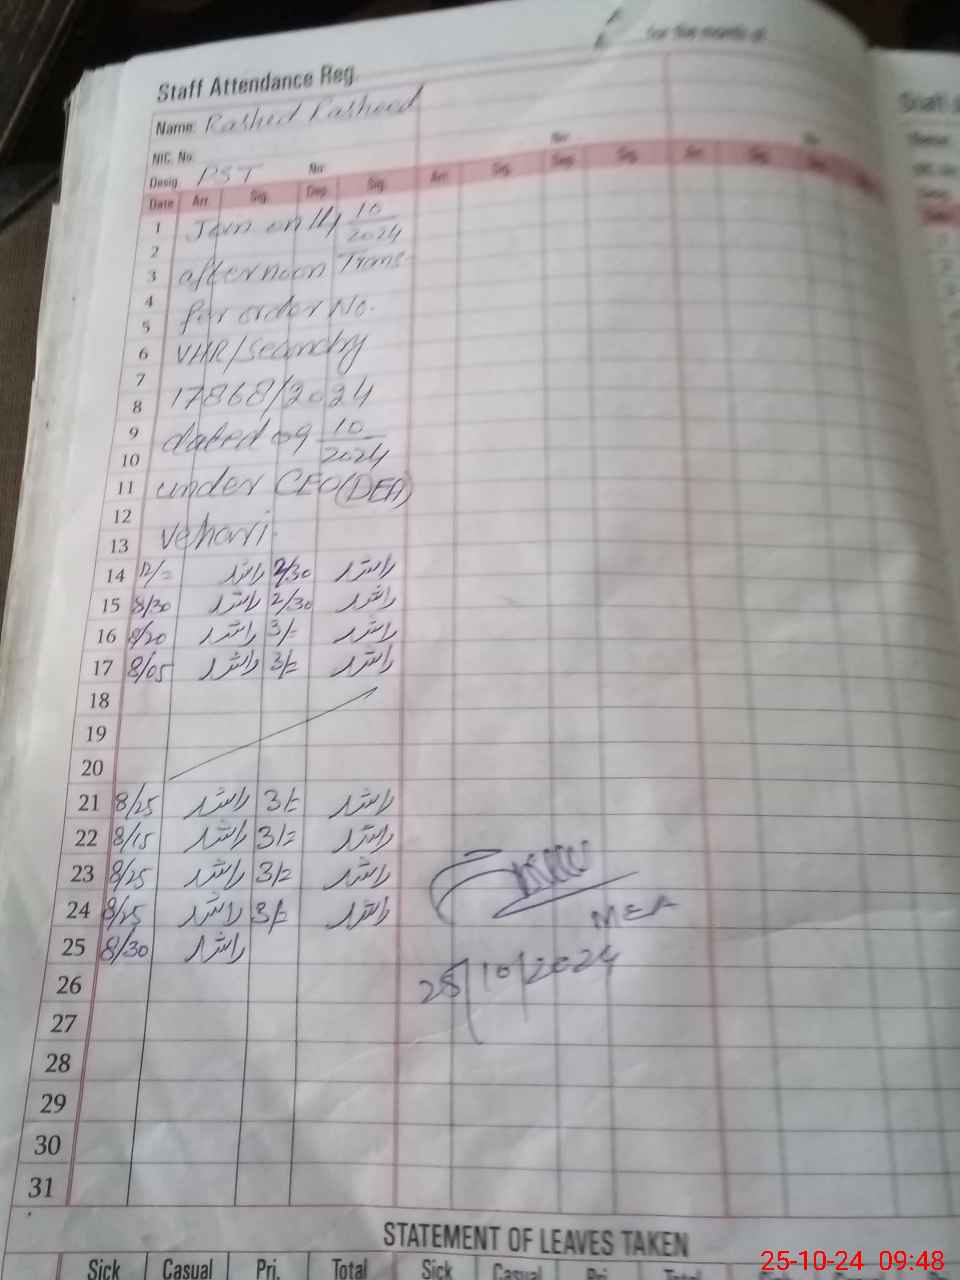 for the month of
Staff Attendance Reg.
Name: Rashed Rasheed
NIC. No.
Desig. PST No
Date Arr. Sig. Dep. Sig. Arr. Sig. Dep. Sig. Arr. Sig.
1 Join on 14 10/2024
2
3 afternoon Trans
4
5 per order No.
6 VHR/Secondry
7
8 17868/2024
9 dated 09 10/2024
10
11 under CEO (DEA)
12
13 Vehari.
14 12/= راشد 2/30 راشد
15 8/30 راشد 2/30 راشد
16 8/20 راشد 3/= راشد
17 8/05 راشد 3/= راشد
18
19
20
21 8/25 راشد 3/= راشد
22 8/15 راشد 3/= راشد
23 8/25 راشد 3/= راشد
24 8/25 راشد 3/= راشد
MEA
25 8/30 راشد
/10/2024
26
27
28
29
30
31
STATEMENT OF LEAVES TAKEN
Sick Casual Pri. Total Sick Casual Pri. Total
25-10-24 09:48